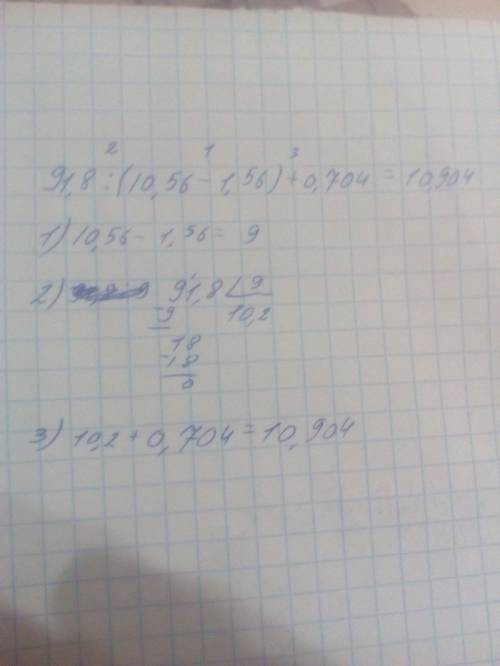 2 1 3
91,8 : (10,56 - 1,56) + 0,704 = 10,904
1) 10,56 - 1,56 = 9
2) 91,8 9
- 9 10,2
18
- 18
0
3) 10,2 + 0,704 = 10,904